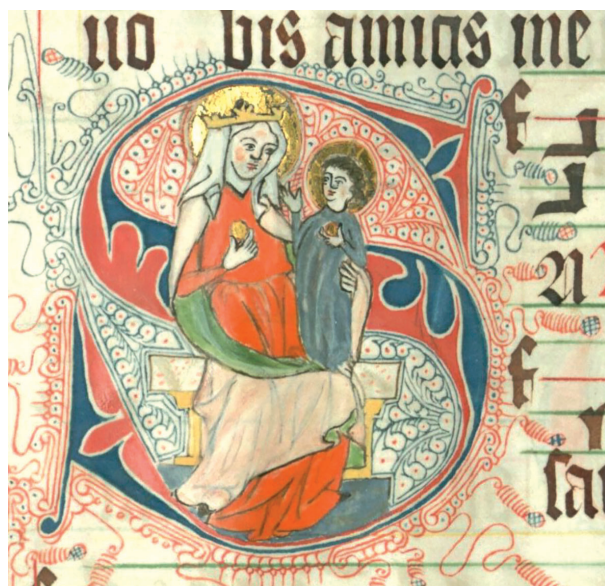 uo bis amicos me
S
f
A
f
sa
f